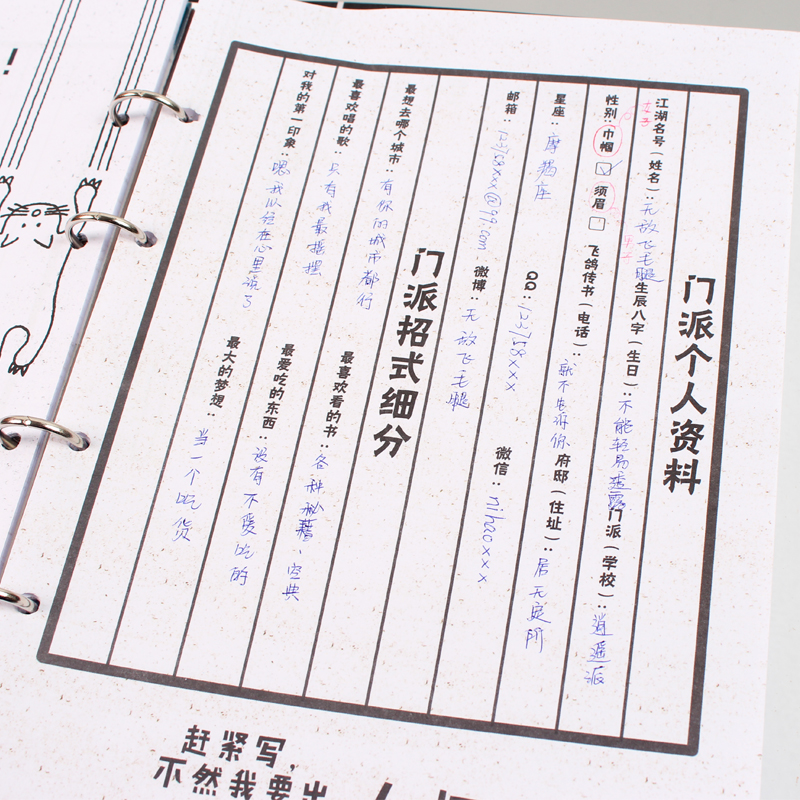 门派个人资料
江湖名号(姓名):无敌飞毛腿 生辰八字(生日):不能轻易透露 门派(学校):逍遥派
性别:巾帼 须眉 飞鸽传书(电话):就不告诉你 府邸(住址):居无定所
女子
星座:摩羯座 QQ:123758xxx 微信:nihaoxxx
邮箱:123758xxx@qq.com 微博:无敌飞毛腿
门派招式细分
最想去哪个城市:有你的城市都行
最喜欢唱的歌:只有我最摇摆 最喜欢看的书:各种秘籍、宝典
对我的第一印象:嗯我以经在心里说了 最爱吃的东西:没有不爱吃的
最大的梦想:当一个吃货
赶紧写,
不然我要出
!